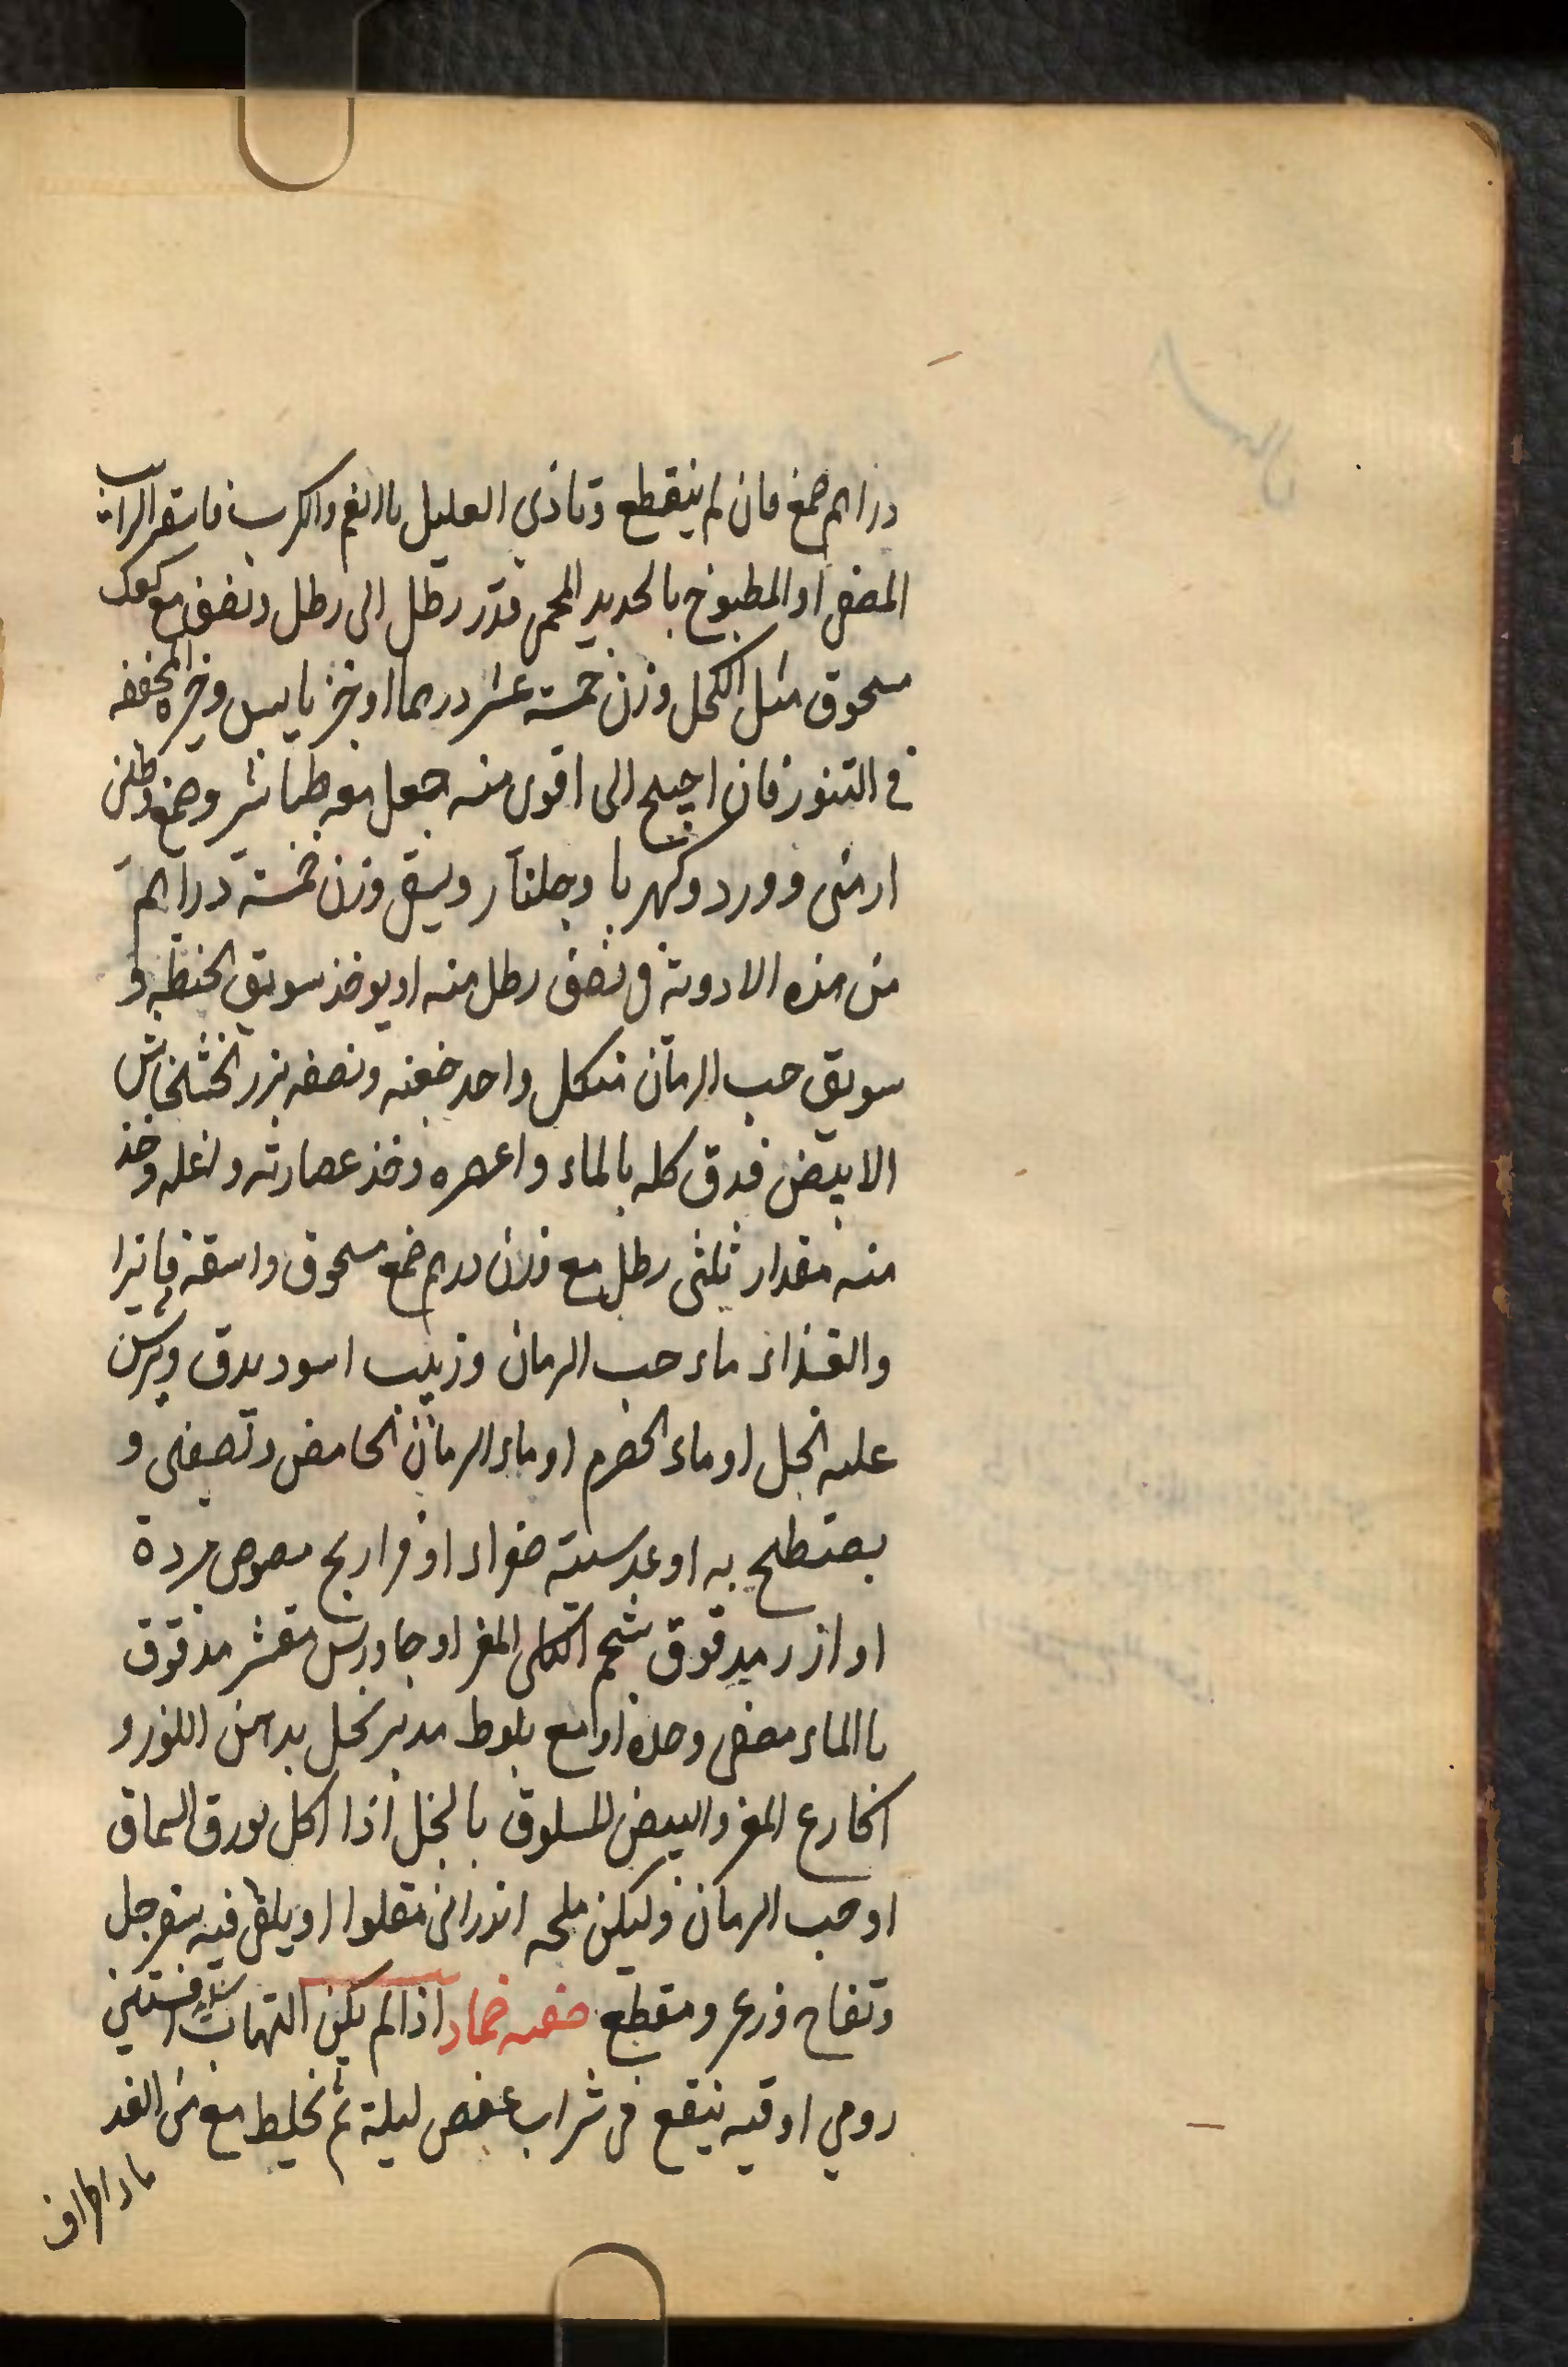 دراهم صمغ فان لم ينقطع وتاذي العليل بالغم والكرب فاسقه الرايب
المصفى او المطبوخ بالحديد المحمى قدر رطل الى رطل ونصف مع كعك
مسحوق مثل الكحل وزن خمسة عشر درهما او خبز يابس وخبزه المجففه
في التنور فان احتيج الى اقوى منه جعل معه طباشير وصمغ وطين
ارمنى وورد وكهربا وجلنار ويسقى وزن خمسة دراهم
من هذه الادوية فى نصف رطل منه او يوخذ سويق الحنطه و
سويق حب الرمان من كل واحد حفنه ونصفه بزر الخشخاش
الابيض فدق كله بالماء واعصره وخذ عصارته واغله وخذ
منه مقدار ثلثى رطل مع وزن درهم صمغ مسحوق واسقه فاترا
والغذاء ماء حب الرمان وزبيب اسود يدق ويمرس
عليه الخل او ماء الحصرم او ماء الرمان الحامض وتصفى و
يصطبح به او عدسية صفراء او فراريج مصوص مبردة
او ارز مدقوق بشحم الكلى المعز او جاورس مقشر مدقوق
باالماء مصفى وحده او مع بلوط مدبر بخل بدهن اللوز و
اكارع المعز والبيض المسلوق بالخل اذا اكل بورق السماق
او حب الرمان وليكن ملحه اندرانى مقلوا او يلقى فيه سفرجل
وتفاح وزعرور مقطع صفه ضماد اذا لم يكن التهاب شديد افسنتين
رومي اوقيه ينقع فى شراب عفص ليلة ثم يخلط مع من الغد
ماء اطراف